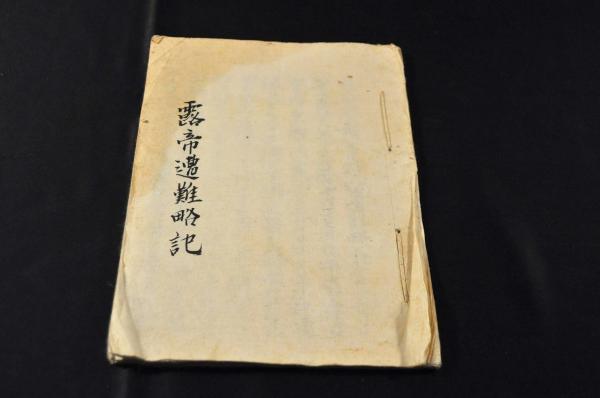 露帝遭難略記